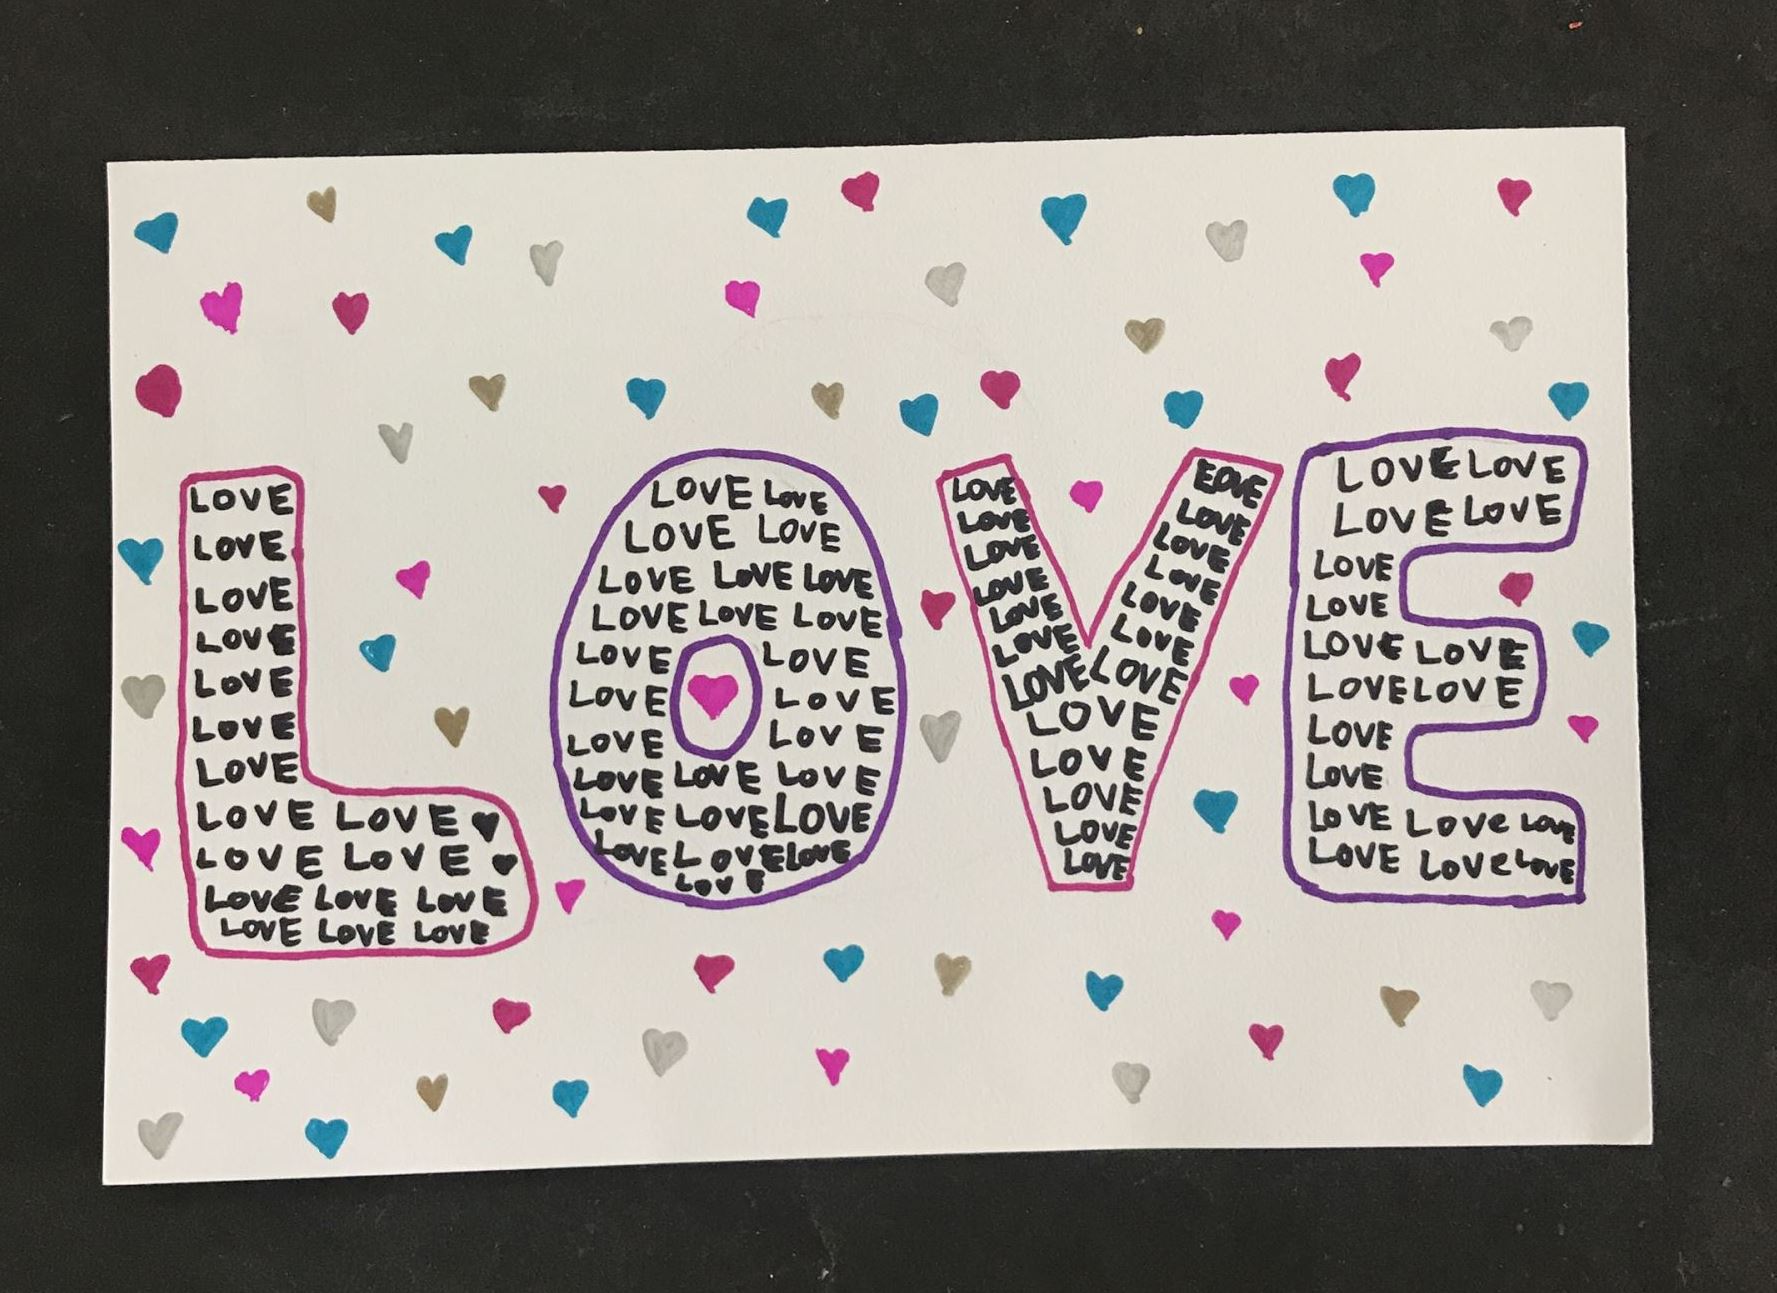 LOVE
LOVE
LOVE
LOVE
LOVE
LOVE
LOVE
LOVE LOVE
LOVE LOVE
LOVE LOVE LOVE
LOVE LOVE LOVE
LOVE LOVE
LOVE LOVE
LOVE LOVE LOVE
LOVE LOVE LOVE
LOVE LOVE
LOVE LOVE
LOVE LOVE
LOVE LOVE LOVE
LOVE LOVE LOVE
LOVE LOVE LOVE
LOVE
LOVE EOVE
LOVE LOVE
LOVE LOVE
LOVE LOVE
LOVE LOVE
LOVE LOVE
LOVE LOVE
LOVE
LOVE
LOVE
LOVE
LOVE
LOVE LOVE
LOVE LOVE
LOVE
LOVE
LOVE LOVE
LOVE LOVE
LOVE
LOVE
LOVE LOVe LOVE
LOVE LOVe LOVE